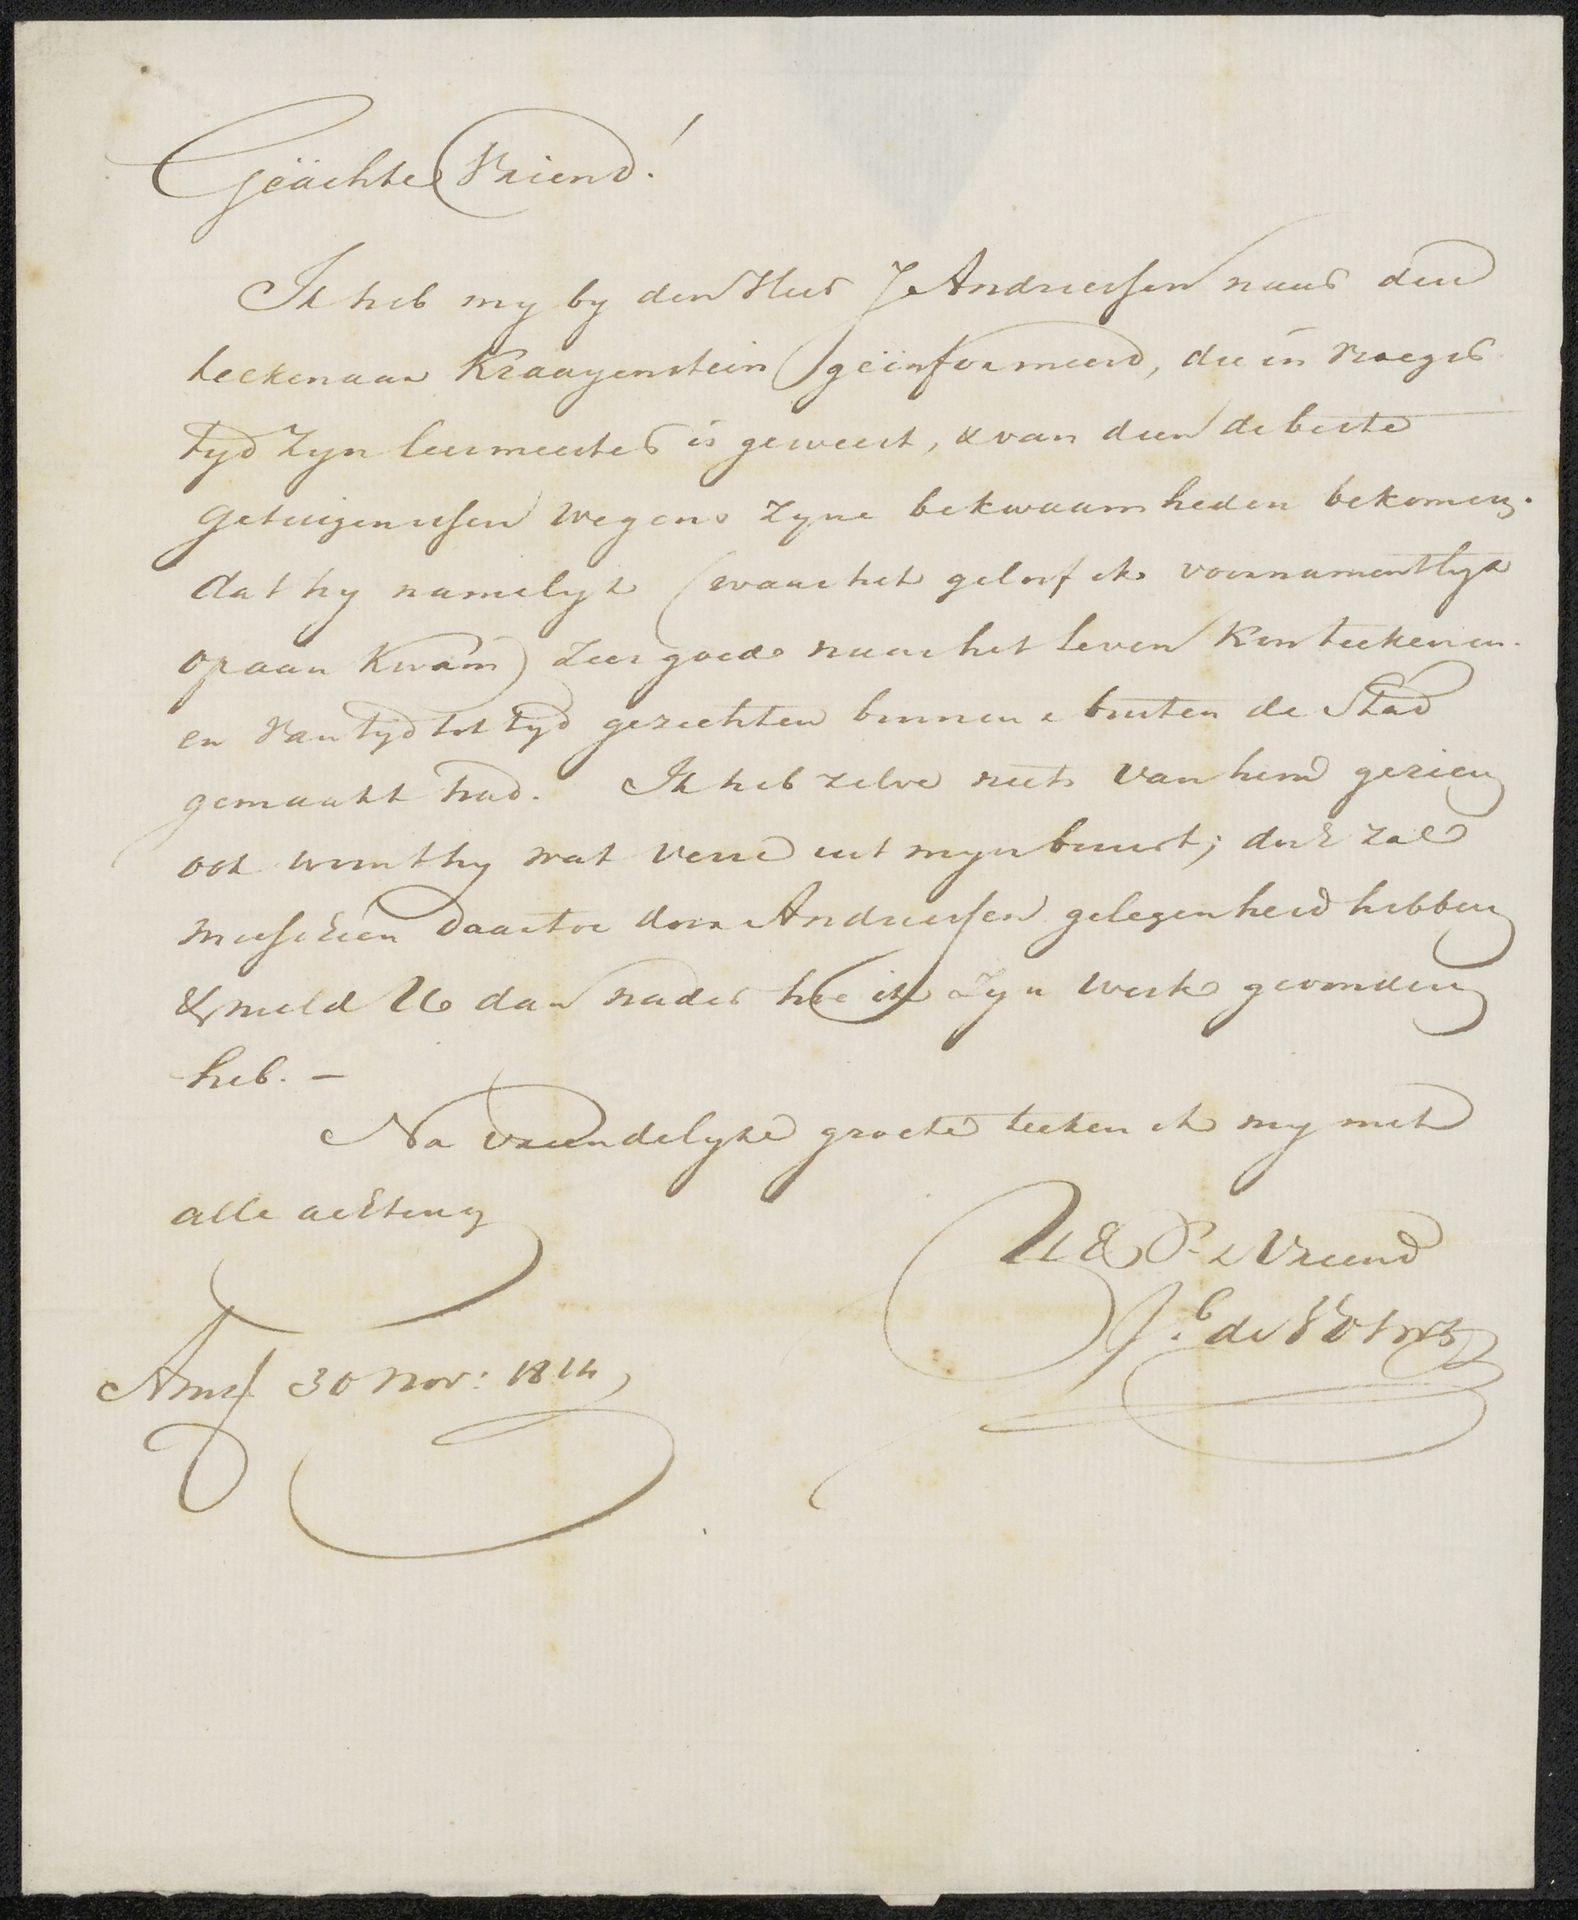 Geächte Vriend!
Ik heb my by den Heer J Andriessen naar den
teekenaar Kraayenstein geïnformeerd, die in vroeger
tyd zyn leermeester is geweest, & van dien de beste
getuigenissen wegens zyne bekwaamheden bekomen.
dat hy namelyk (waar het geloof ik voornamentlyk
op aan kwam) zeer goed naar het leven kon teekenen.
en van tyd tot tyd gezichten binnen & buiten de Stad
gemaakt had. Ik heb zelve niets van hem gezien
ook woont hy wat verre uit myn buurt; doch zal
misschien daartoe door Andriessen gelegenheid hebben
& meld U dan nader hoe ik zyn werk gevonden
heb. —
Na vriendelyke groete teeken ik my met
alle achting
UE Vriend
Jb de Vos Wz
Amst 30 Nov: 1814